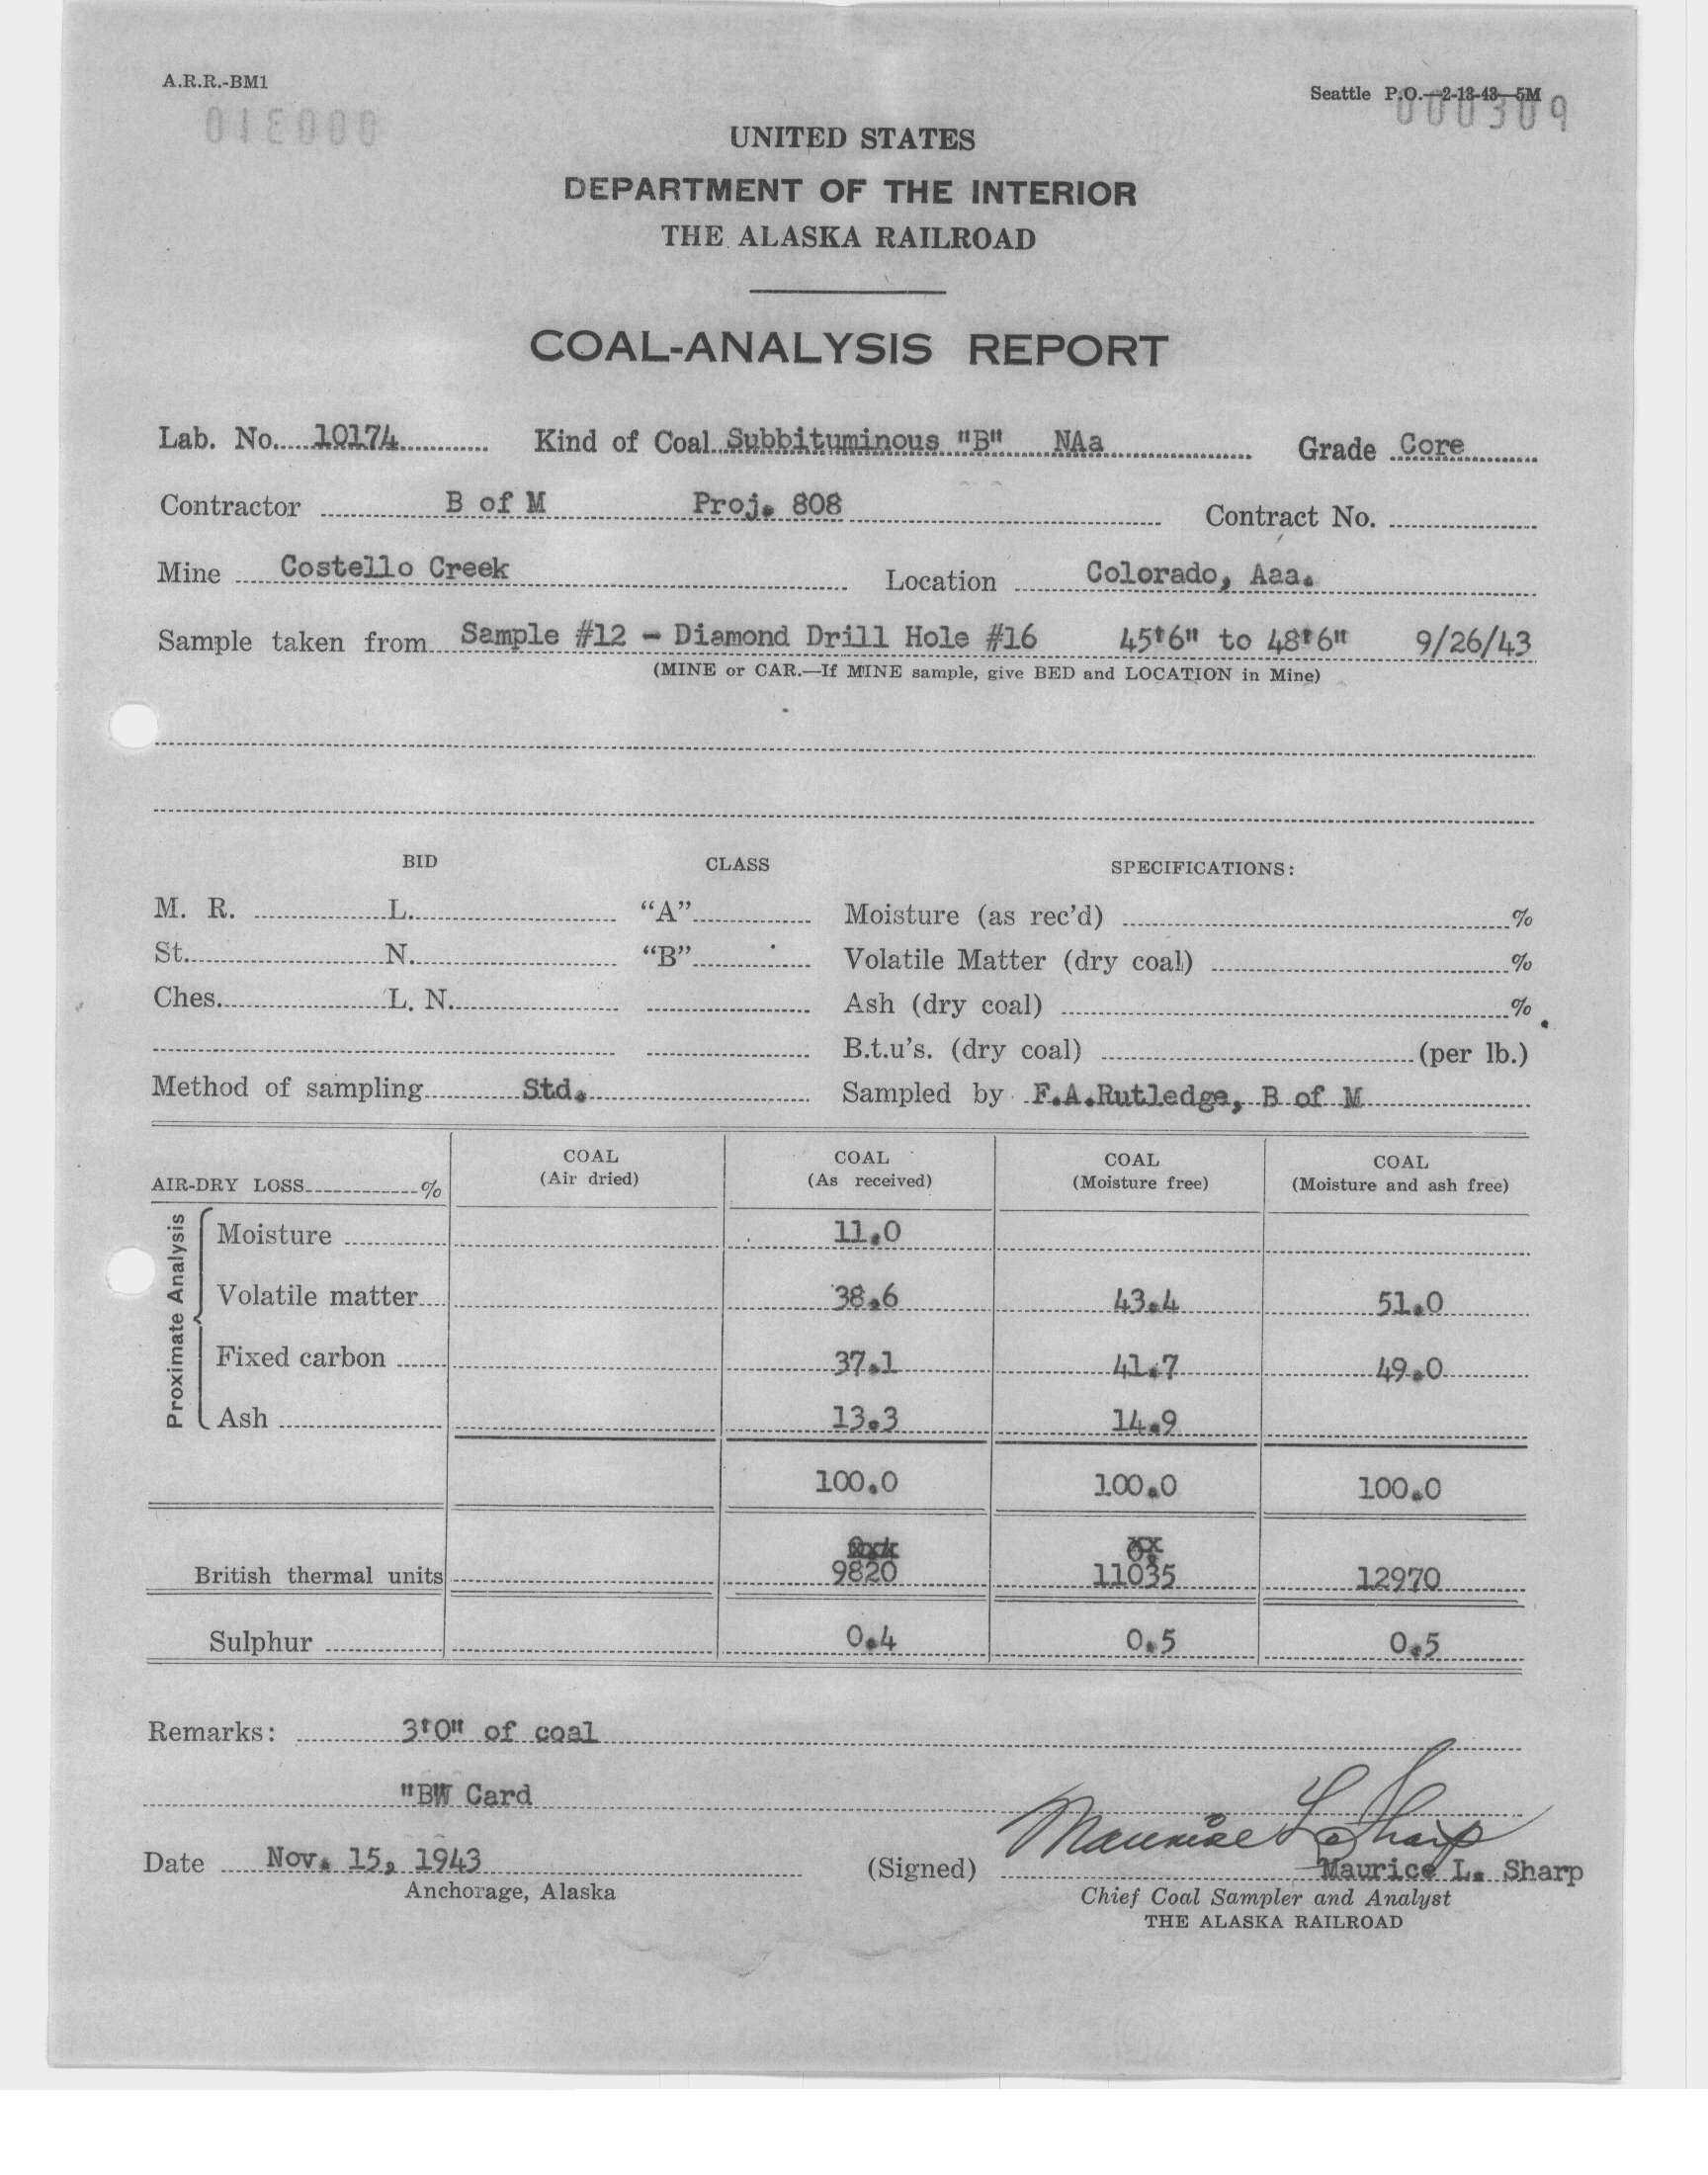 A.R.R.-BM1
Seattle P.O.—2-13-43—5M
000310
000309
UNITED STATES
DEPARTMENT OF THE INTERIOR
THE ALASKA RAILROAD
COAL-ANALYSIS REPORT
Lab. No. 10174 Kind of Coal Subbituminous "B" NAa Grade Core
Contractor B of M Proj. 808 Contract No.
Mine Costello Creek Location Colorado, Aaa.
Sample taken from Sample #12 - Diamond Drill Hole #16 45'6" to 48'6" 9/26/43
(MINE or CAR.—If MINE sample, give BED and LOCATION in Mine)
BID CLASS SPECIFICATIONS:
M. R. L. "A" Moisture (as rec'd) %
St. N. "B" Volatile Matter (dry coal) %
Ches. L. N. Ash (dry coal) %
B.t.u's. (dry coal) (per lb.)
Method of sampling Std. Sampled by F.A.Rutledge, B of M
AIR-DRY LOSS % COAL (Air dried) COAL (As received) COAL (Moisture free) COAL (Moisture and ash free)
Proximate Analysis
Moisture 11.0
Volatile matter 38.6 43.4 51.0
Fixed carbon 37.1 41.7 49.0
Ash 13.3 14.9
100.0 100.0 100.0
British thermal units 9820 11035 12970
Sulphur 0.4 0.5 0.5
Remarks: 3'0" of coal
"BW Card
Maurice L. Sharp
Date Nov. 15, 1943 (Signed) Maurice L. Sharp
Anchorage, Alaska Chief Coal Sampler and Analyst
THE ALASKA RAILROAD